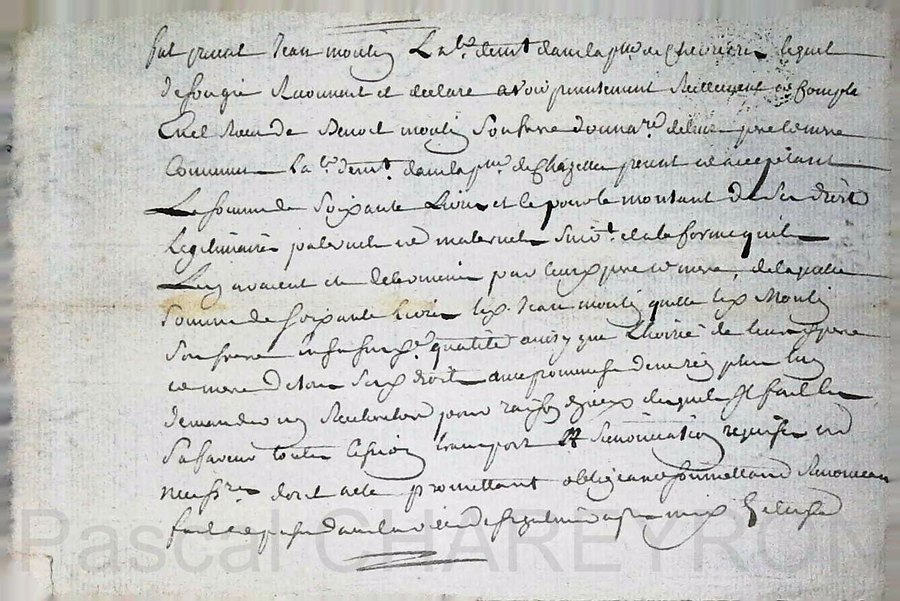 fut present Jean moulin Lab.r dem.t dans la p.sse de Chevrieres lequel
de son gré Reconnoit et declare avoir presentement Reellement et Comple
Benoit moulin Son frere donnat.re de leurs pere et mere
Communs Lab.r dem.t dans la p.sse de Chazelle present et acceptant
La somme de Soixante Livres et le pour le montant de Ses droits
Legitimaires paternels et maternels Suiv.t et a la forme quils
Luy avoient été par leursd pere et mere, de laquelle
Somme de soixante Livres led. Jean moulin quitte led Moulin
Son frere qualité ainsy que Lhoirie de leursd pere
et mere de tous Sesd droits avec promesse de ne rien plus luy
demander ny Rechercher pour raison d'iceux desquels Il fait en
Sa faveur toutes cession transport et renonciation requises et
necess.res dont acte promettant obligeant soumettant Renonceant
fait et passé
Pascal CHAREYRON